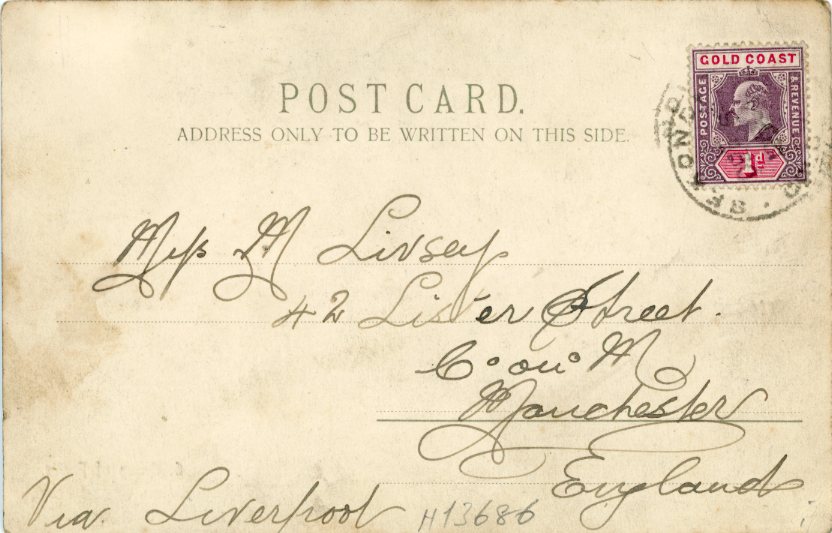 GOLD COAST
POSTAGE & REVENUE
1d
SEKONDI
POST CARD.
ADDRESS ONLY TO BE WRITTEN ON THIS SIDE.
Miss M Livsey
42 Lister Street.
C. on. M
Manchester
England
Via Liverpool H13686